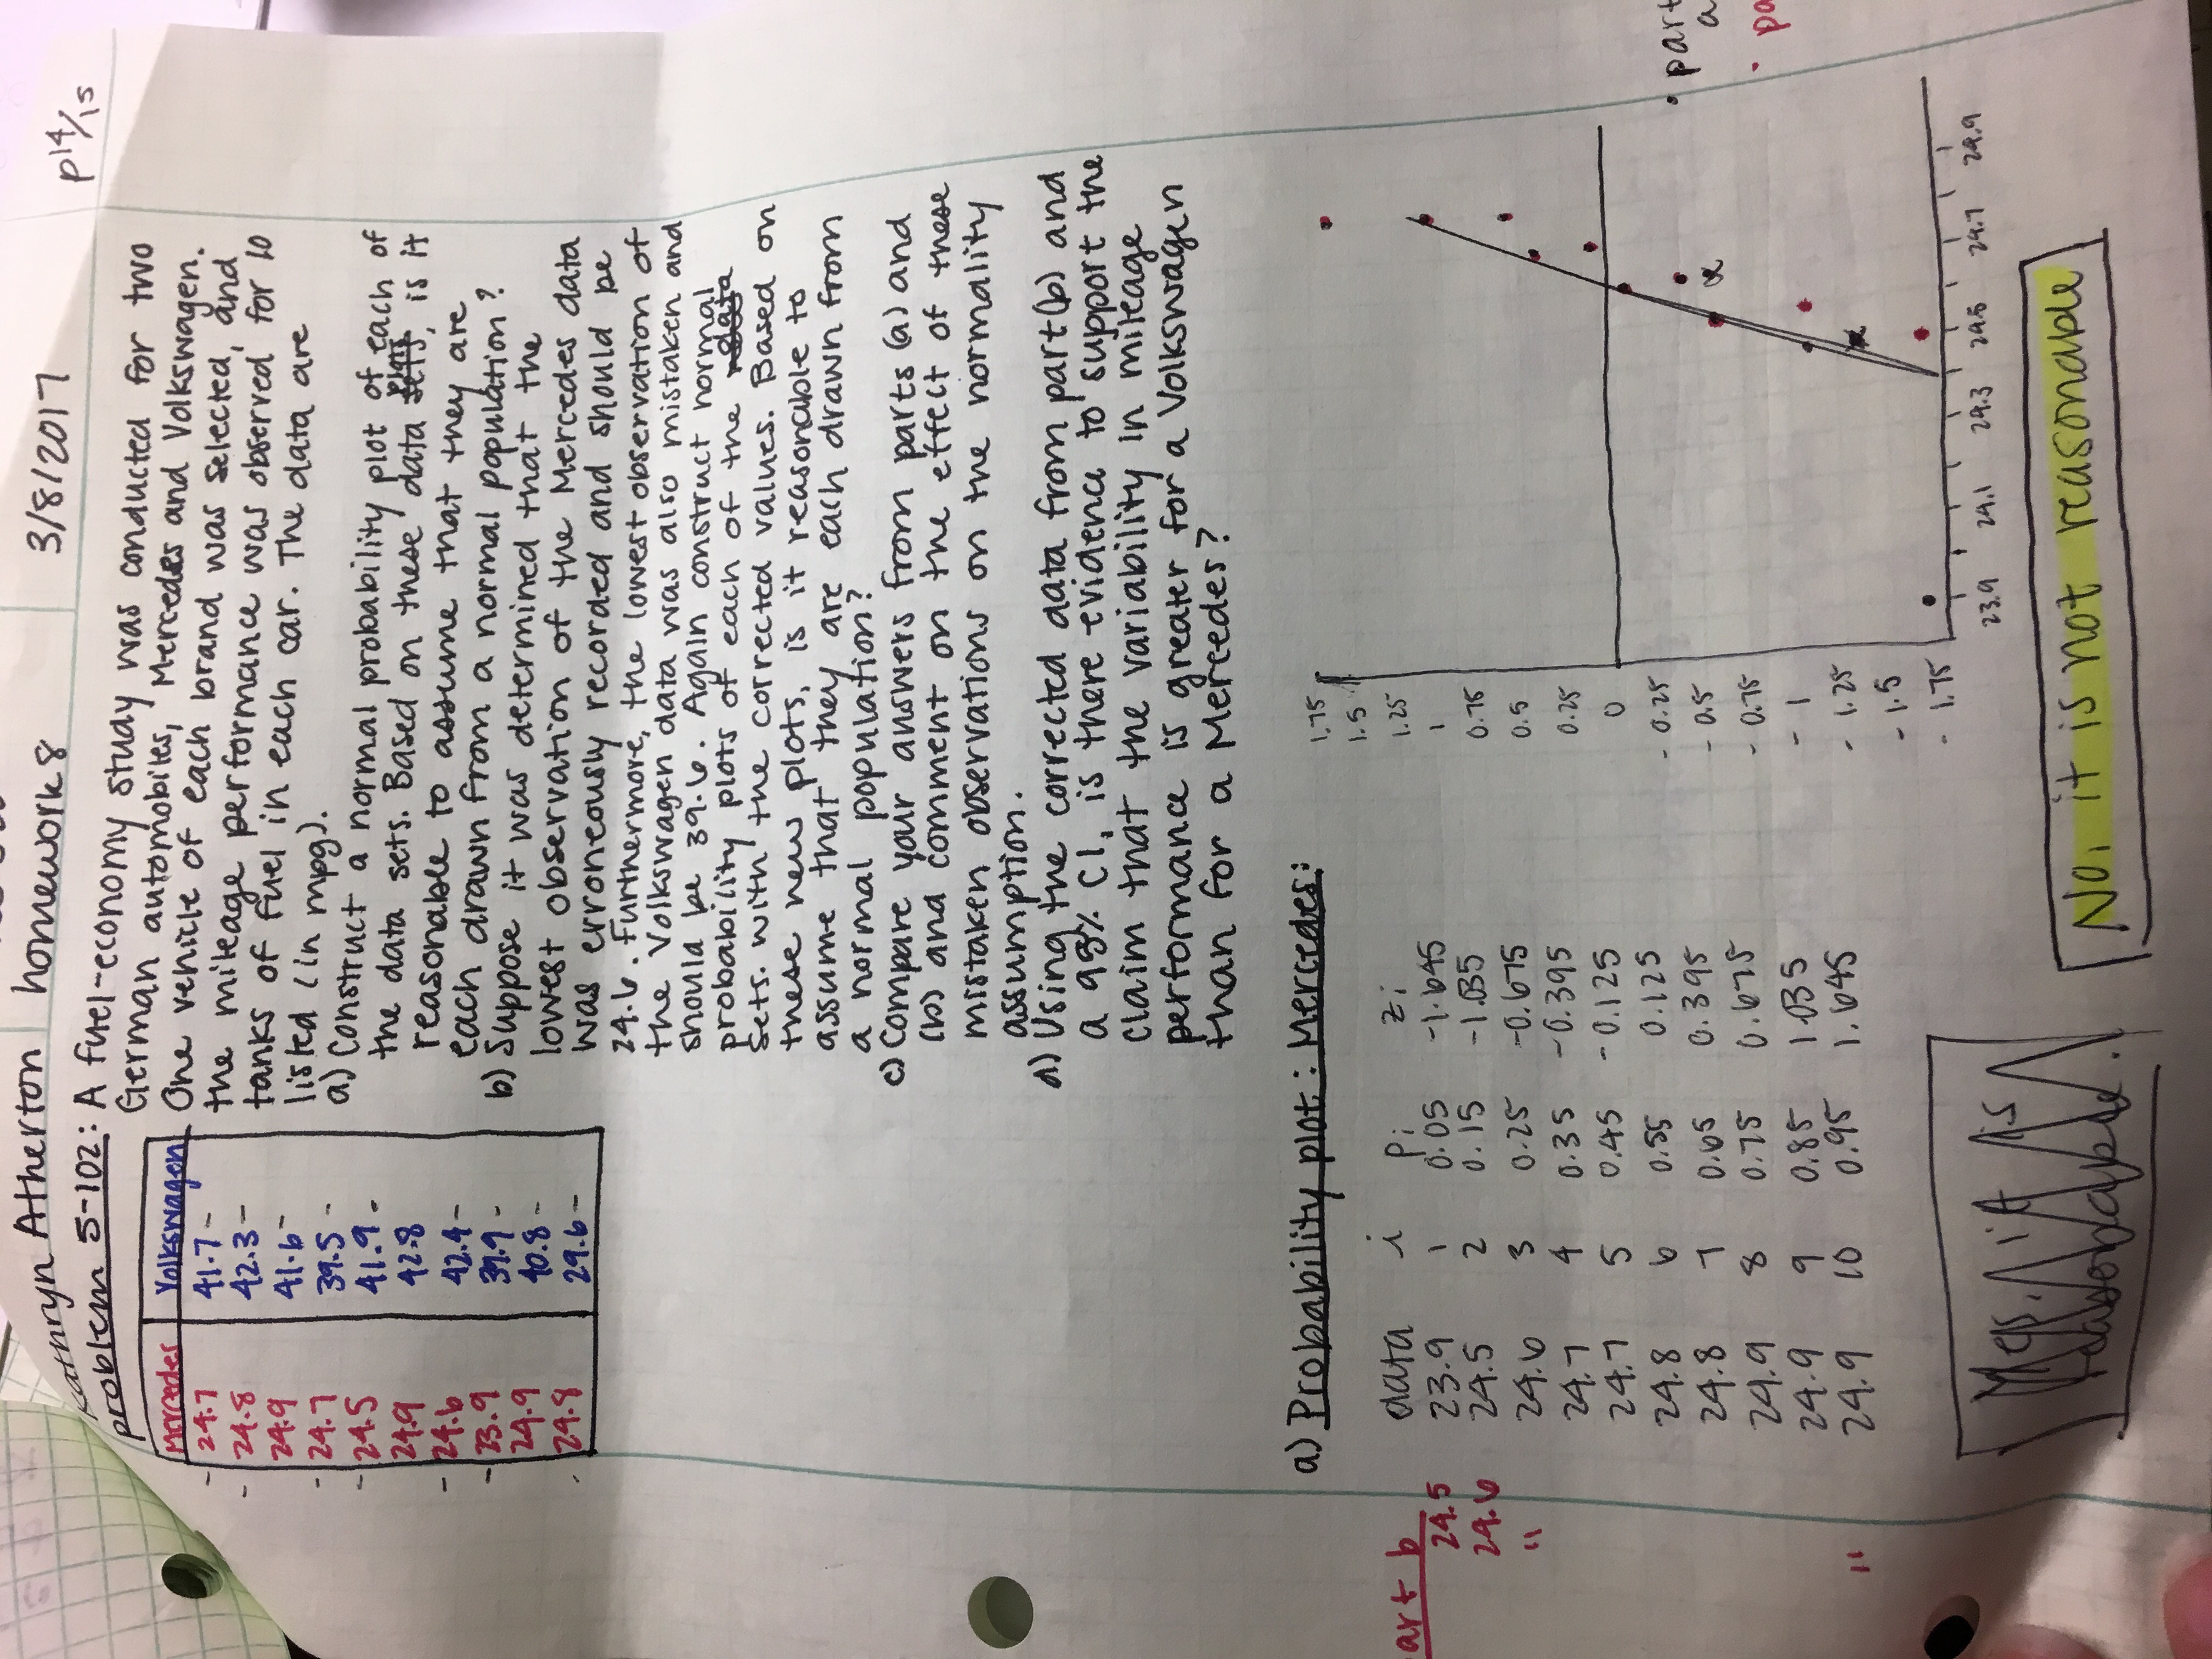 Kathryn Atherton homework 8 3/8/2017 p14/15
problem 5-102: A fuel-economy study was conducted for two
German automobiles, Mercedes and Volkswagen.
One vehicle of each brand was selected, and
the mileage performance was observed for 10
tanks of fuel in each car. The data are
listed (in mpg).
Mercedes Volkswagen
24.7 41.7
24.8 42.3
24.9 41.6
24.7 39.5
24.5 41.9
24.9 42.8
24.6 42.4
23.9 39.9
24.9 40.8
24.8 29.6
a) Construct a normal probability plot of each of
the data sets. Based on these data plots, is it
reasonable to assume that they are
each drawn from a normal population?
b) Suppose it was determined that the
lowest observation of the Mercedes data
was erroneously recorded and should be
24.6. Furthermore, the lowest observation of
the Volkswagen data was also mistaken and
should be 39.6. Again construct normal
probability plots of each of the data
sets. with the corrected values. Based on
these new plots, is it reasonable to
assume that they are each drawn from
a normal population?
c) Compare your answers from parts (a) and
(b) and comment on the effect of these
mistaken observations on the normality
assumption.
d) Using the corrected data from part(b) and
a 95% CI, is there evidence to support the
claim that the variability in mileage
performance is greater for a Volkswagen
than for a Mercedes?
a) Probability plot: Mercedes:
art b data i pi zi
24.5 23.9 1 0.05 -1.645
24.6 24.5 2 0.15 -1.035
" 24.6 3 0.25 -0.675
24.7 4 0.35 -0.395
24.7 5 0.45 -0.125
24.8 6 0.55 0.125
24.8 7 0.65 0.395
24.9 8 0.75 0.675
24.9 9 0.85 1.035
" 24.9 10 0.95 1.645
1.75
1.5
1.25
1
0.75
0.5
0.25
0
-0.25
-0.5
-0.75
-1
-1.25
-1.5
-1.75
23.9 24.1 24.3 24.5 24.7 24.9
part
a
pa
Yes, it is
reasonable.
No, it is not reasonable